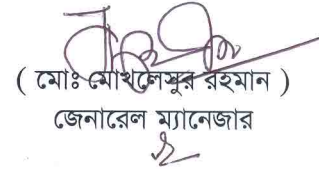 ( মোঃ মোখলেসুর রহমান )
জেনারেল ম্যানেজার